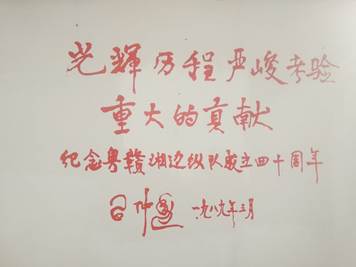 光辉历程严峻考验
重大的贡献
纪念粤赣湘边纵队成立四十周年
一九八九年三月